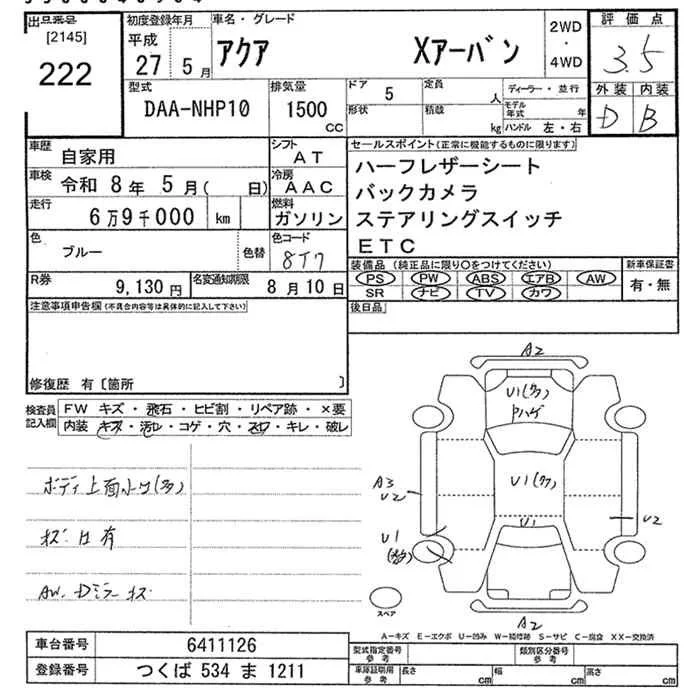 出品番号
[2145]
222
初度登録年月
平成
27 5月
車名・グレード
アクア Xアーバン
2WD
・
4WD
評価点
3.5
外装 内装
D B
型式
DAA-NHP10
排気量
1500
CC
ドア 5
定員 人
形状
積載 kg
ディーラー・並行
モデル年式 年
ハンドル 左・右
車歴
自家用
シフト
AT
車検
令和 8年 5月( 日)
冷房
AAC
走行
6万9千000 km
燃料
ガソリン
色
ブルー
色替
色コード
8T7
R券
9,130円
名変通知期限
8月10日
セールスポイント(正常に機能するものに限ります)
ハーフレザーシート
バックカメラ
ステアリングスイッチ
ETC
装備品(純正品に限り○をつけてください)
PS PW ABS エアB AW
SR ナビ TV カワ
新車保証書
有・無
注意事項申告欄(不具合内容等は具体的に記入して下さい)
後日品
修復歴 有〔箇所 〕
検査員
記入欄
FW キズ・飛石・ヒビ割・リペア跡・×要
内装 キズ・汚レ・コゲ・穴・スレ・キレ・破レ
ボディ上面小U(多)
キズ・凹有
AW. Dミラーキズ
A2
U1(多)
Pハゲ
U1(多)
U1
A3
U2
U1
U2
A2
スペア
A-キズ E-エクボ U-凹み W-補修跡 S-サビ C-腐食 XX-交換済
車台番号 6411126
登録番号 つくば 534 ま 1211
型式指定番号
参考
類別区分番号
参考
車庫証明用
参考
長さ cm
幅 cm
高さ cm